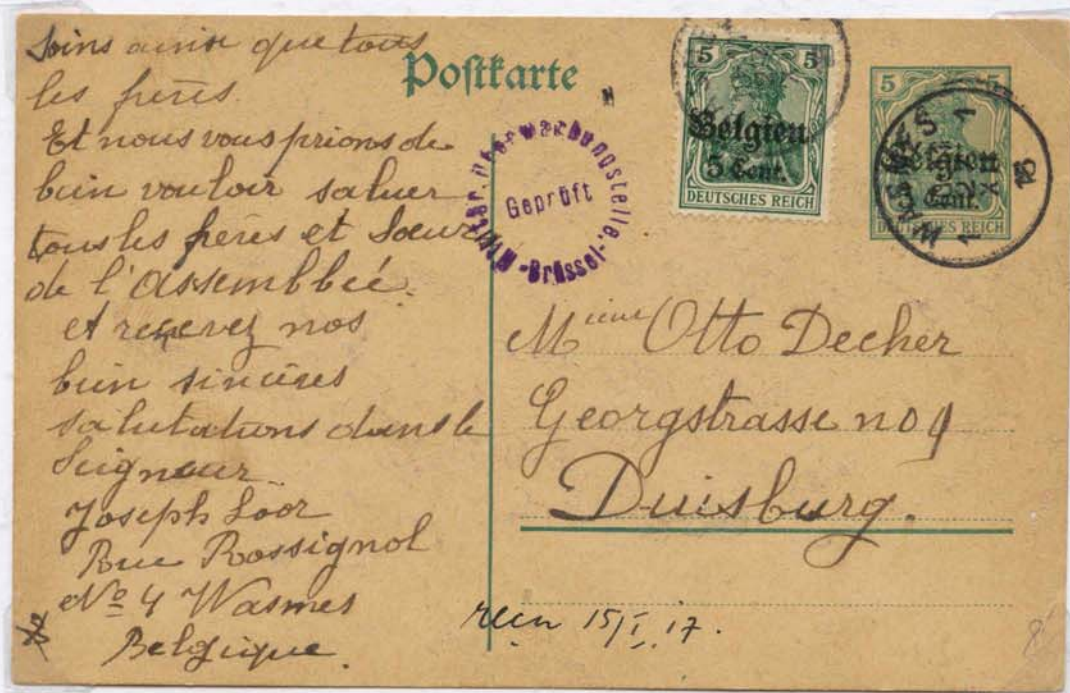 Soins ainsi que tous
les frères.
Et nous vous prions de
bien vouloir saluer
tous les frères et Sœurs
de l'Assembleé.
et recevez nos
bien sincères
salutations dans le
Seigneur.
Joseph Loor
Rue Rossignol
Nº 4 Wasmes
Belgique.
Postkarte
Militär. Postüberwachungstelle.-Brüssel-
Geprüft
5 5
Belgien
5 Cent.
DEUTSCHES REICH
5 5
Belgien
Cent.
DEUTSCHES REICH
WASMES
Mieur Otto Decher
Georgstrasse no 9
Duisburg.
recu 15/I.17.